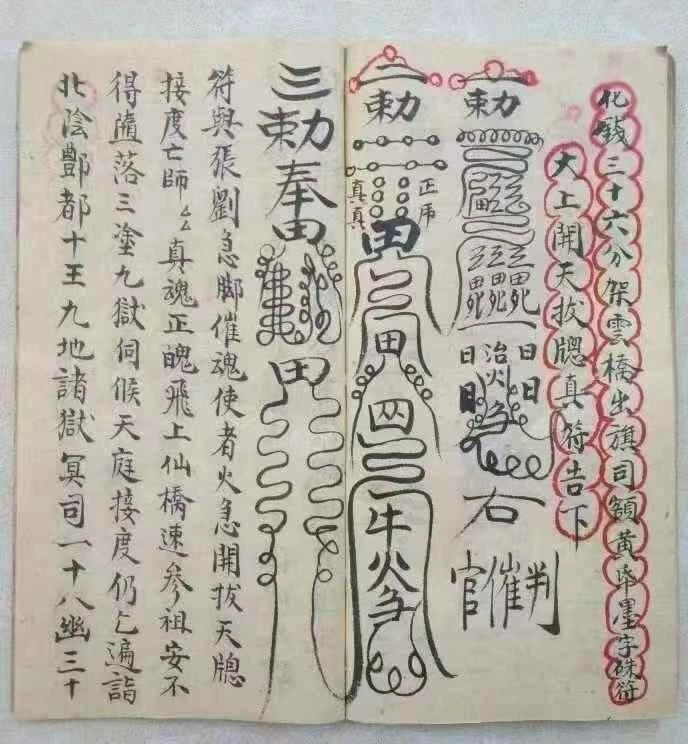 化錢三十六分架雲橋出旗司額黃帋墨字硃符
大上開天拔牕真符告下
一勅
日日
右
官催判
二勅
真真
田
三
田
牛火急
三勅奉田
田
符與張劉急脚催魂使者火急開拔天牕
接度亡師厶厶真魂正魄飛上仙橋速參祖安不
得墮落三塗九獄伺候天庭接度仍乞遍詣
北陰酆都十王九地諸獄冥司一十八幽三十